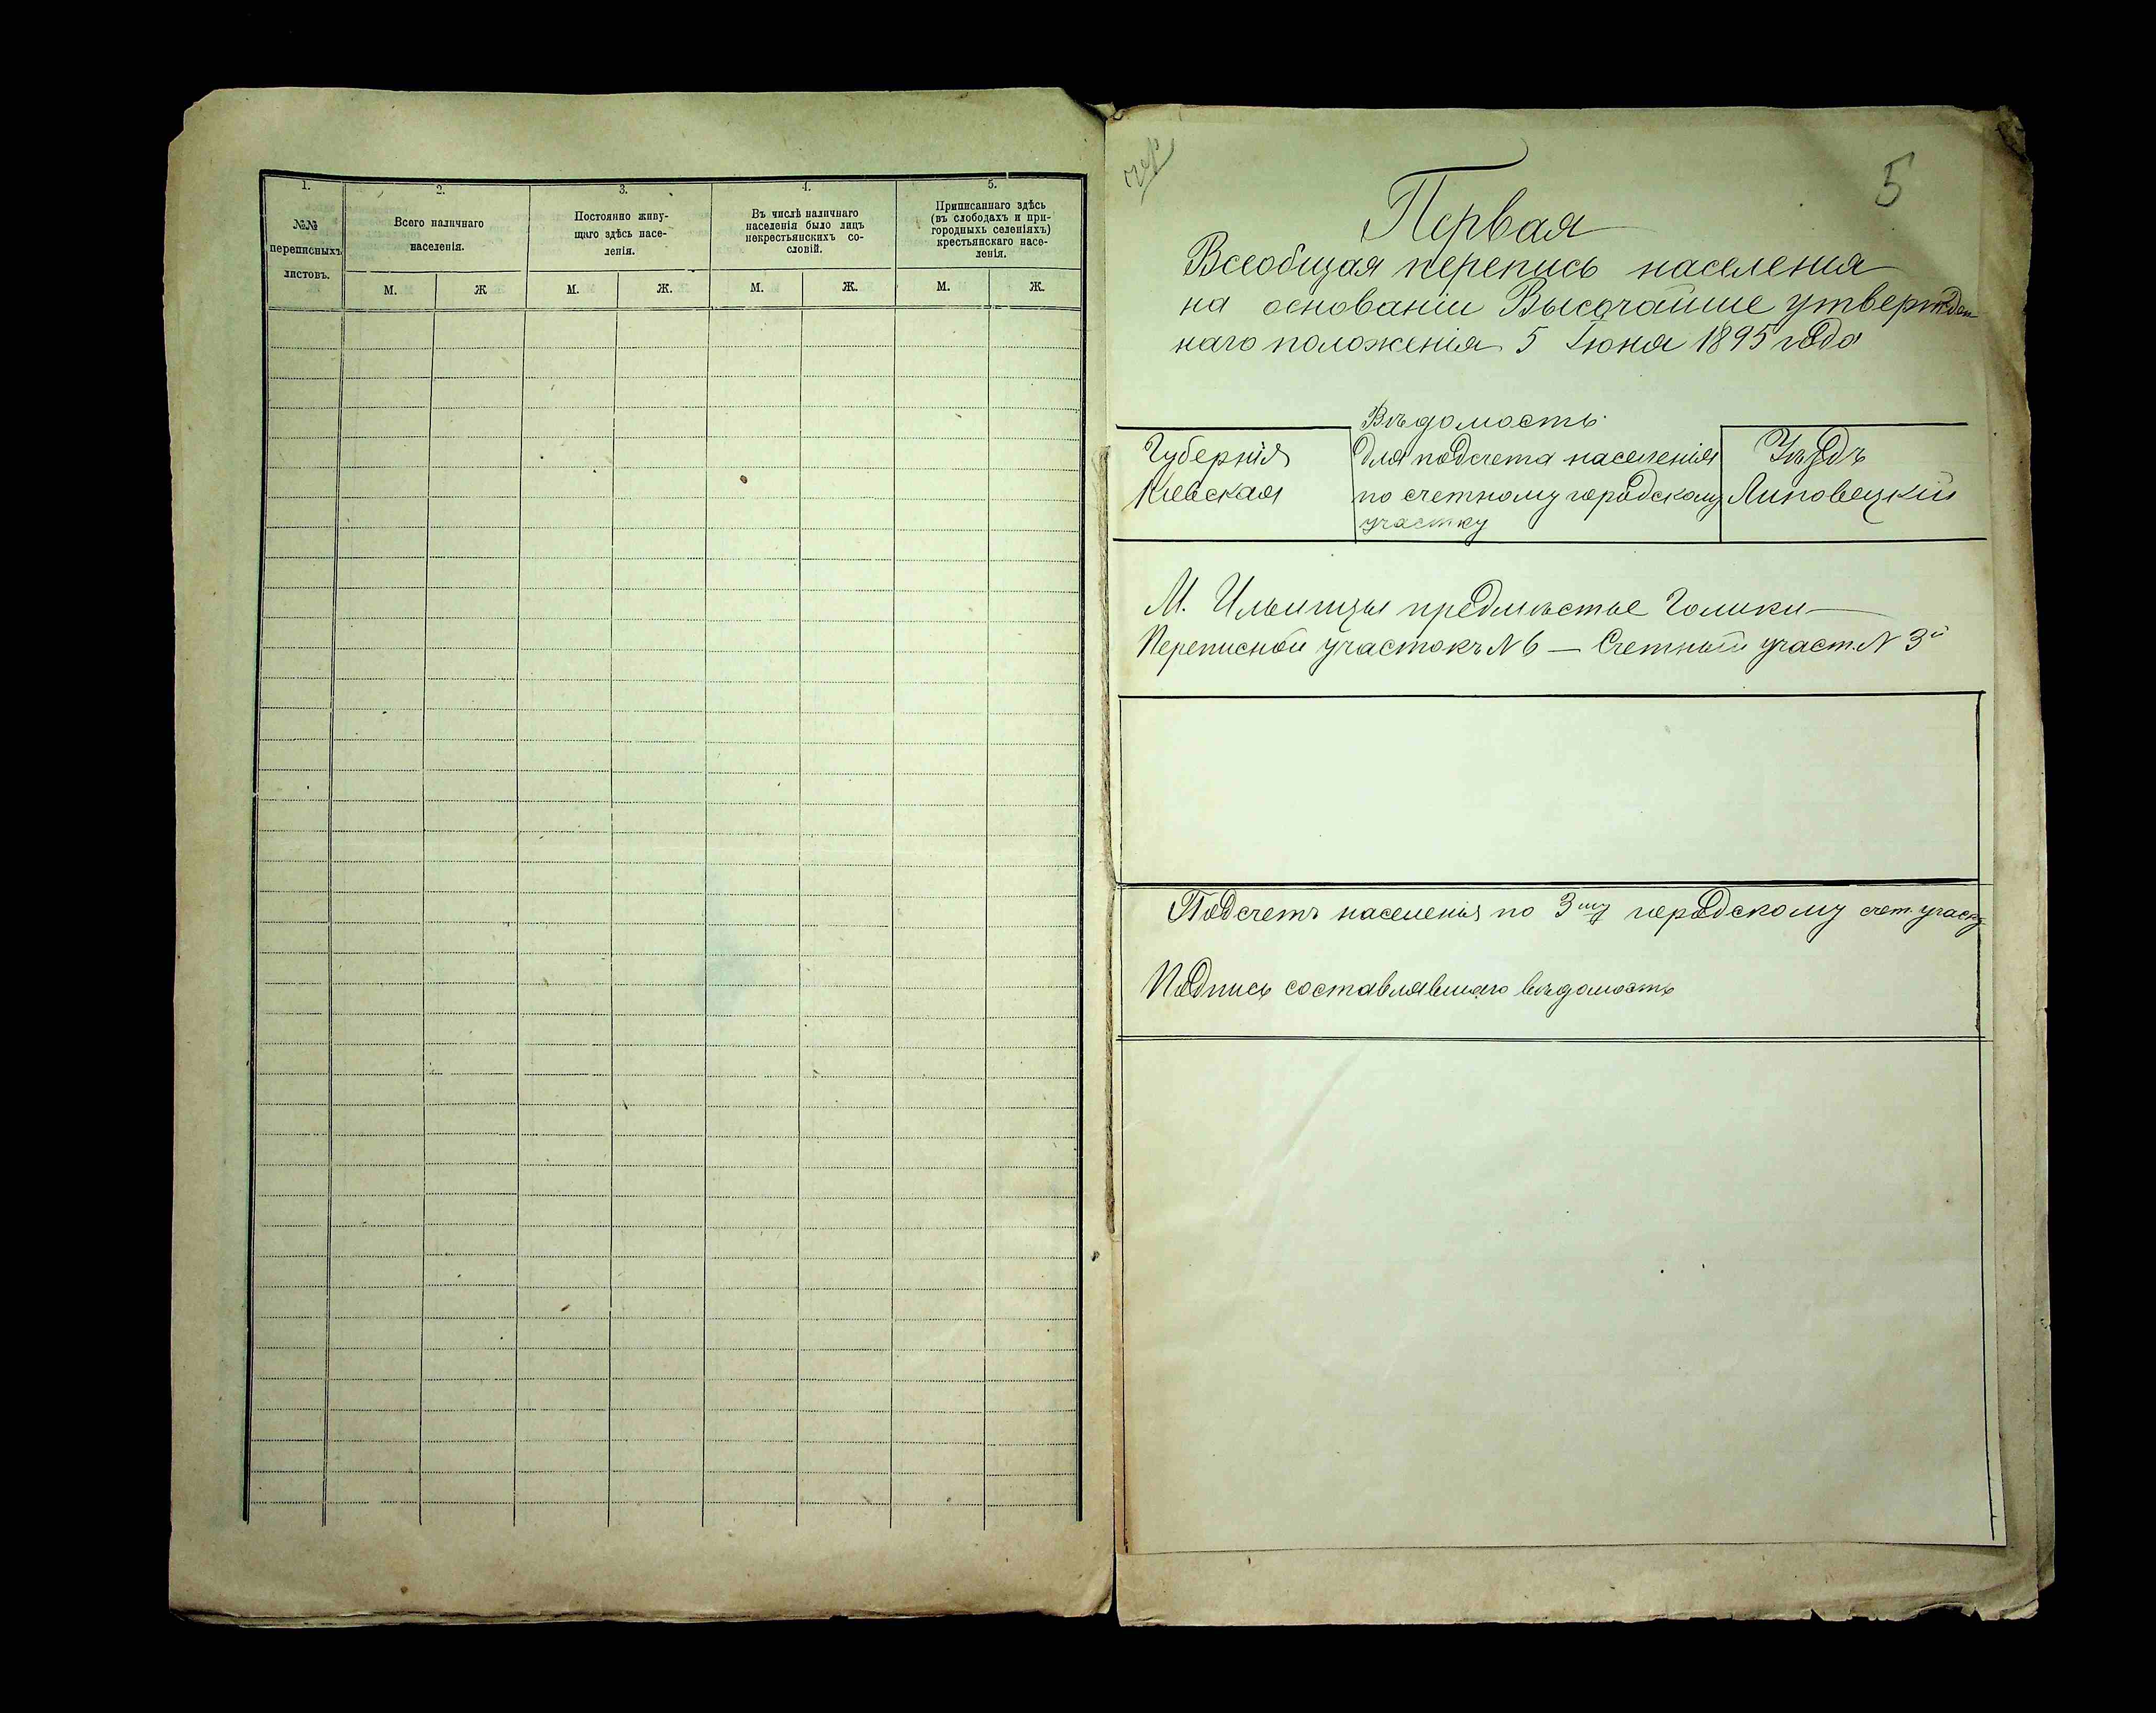 1.
№№
переписныхъ
листовъ.
2.
Всего наличнаго
населенія.
3.
Постоянно живу-
щаго здѣсь насе-
ленія.
4.
Въ числѣ наличнаго
населенія было лицъ
некрестьянскихъ со-
словій.
5.
Приписаннаго здѣсь
(въ слободахъ и при-
городныхъ селеніяхъ)
крестьянскаго насе-
ленія.
М. Ж М. Ж. М. Ж. М. Ж.
5
Первая
Всеобщая перепись населенія
на основаніи Высочайше утвержден
наго положенія 5 Іюня 1895 года
Вѣдомость
Губернія
Кіевская
для подсчета населенія
по счетному городскому
участку
Уѣздъ
Липовецкій
М. Ильинцы предмѣстье Голики
Переписной участокъ N 6 — Счетный участ. N 3й
Подсчетъ населенія по 3му городскому счет. участку
Подпись составлявшаго вѣдомость